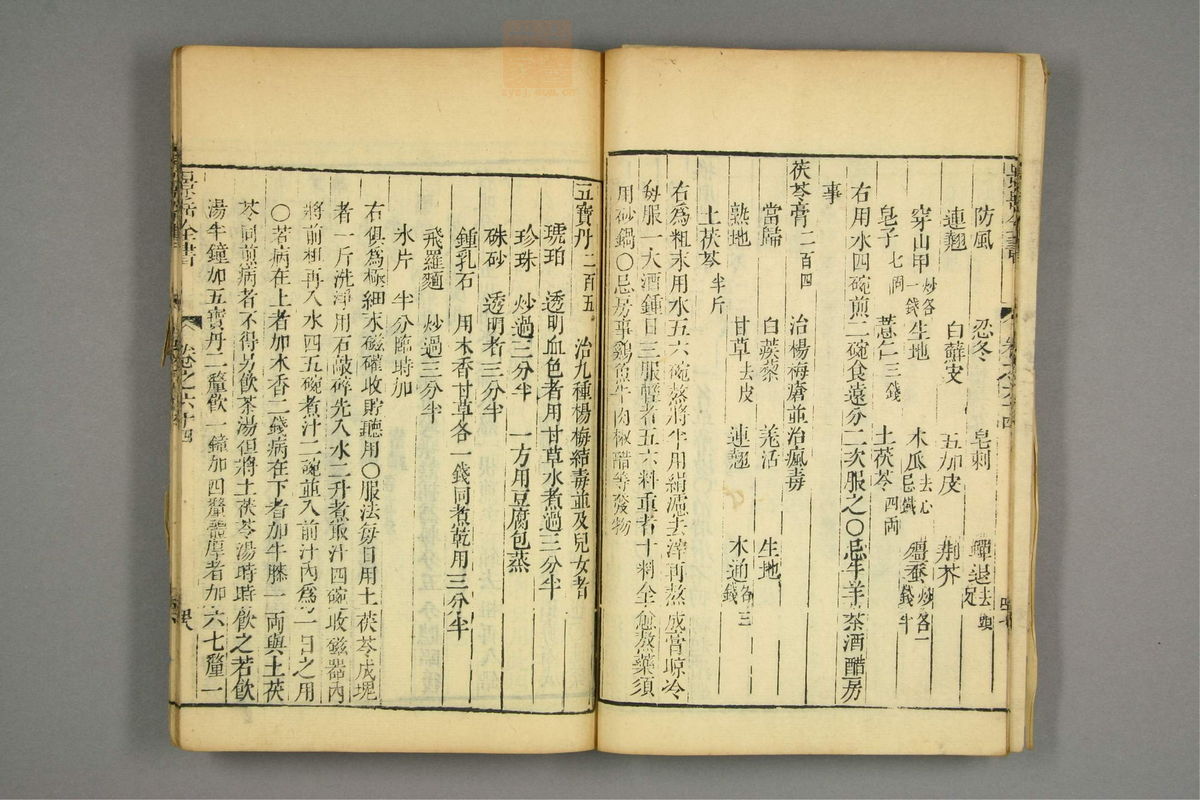 防風 忍冬 皂刺 蟬退去頭足
連翹 白蘚皮 五加皮 荆芥
穿山甲炒各一錢 生地 木瓜去心忌鐵 殭蚕炒各一錢半
皂子七個 薏仁三錢 土茯苓四両
右用水四碗煎二碗食遠分二次服之〇忌牛羊茶酒醋房
事
茯苓膏二百四 治楊梅瘡並治瘋毒
當歸 白蒺藜 羗活 生地
熟地 甘草去皮 連翹 木通各三錢
土茯苓半斤
右為粗末用水五六碗蒸將半用絹濾去滓再蒸成膏晾冷
每服一大酒鍾日三服輕者五六料重者十料全愈熬藥須
用砂鍋〇忌房事鷄魚牛肉椒醋等發物
五寳丹二百五 治九種楊梅結毒並及兒女者
琥珀 透明血色者用甘草水煮過三分半
珍珠 炒過三分半 一方用豆腐包蒸
硃砂 透明者三分半
鍾乳石 用木香甘草各一錢同煮乾用三分半
飛羅麵 炒過三分半
氷片 半分臨時加
右俱為極細末磁礶收貯聽用〇服法每日用土茯苓成塊
者一斤洗淨用石敲碎先入水二升煮取汁四碗收磁器內
將前粗再入水四五碗煮汁二碗並入前汁內為一日之用
〇若病在上者加木香二錢病在下者加牛膝一両與土茯
苓同煎病者不得另飲茶湯但將土茯苓湯時時飲之若飲
湯半鐘加五寳丹二釐飲一鐘加四釐體厚者加六七釐一
景岳全書 卷之六十四 罘